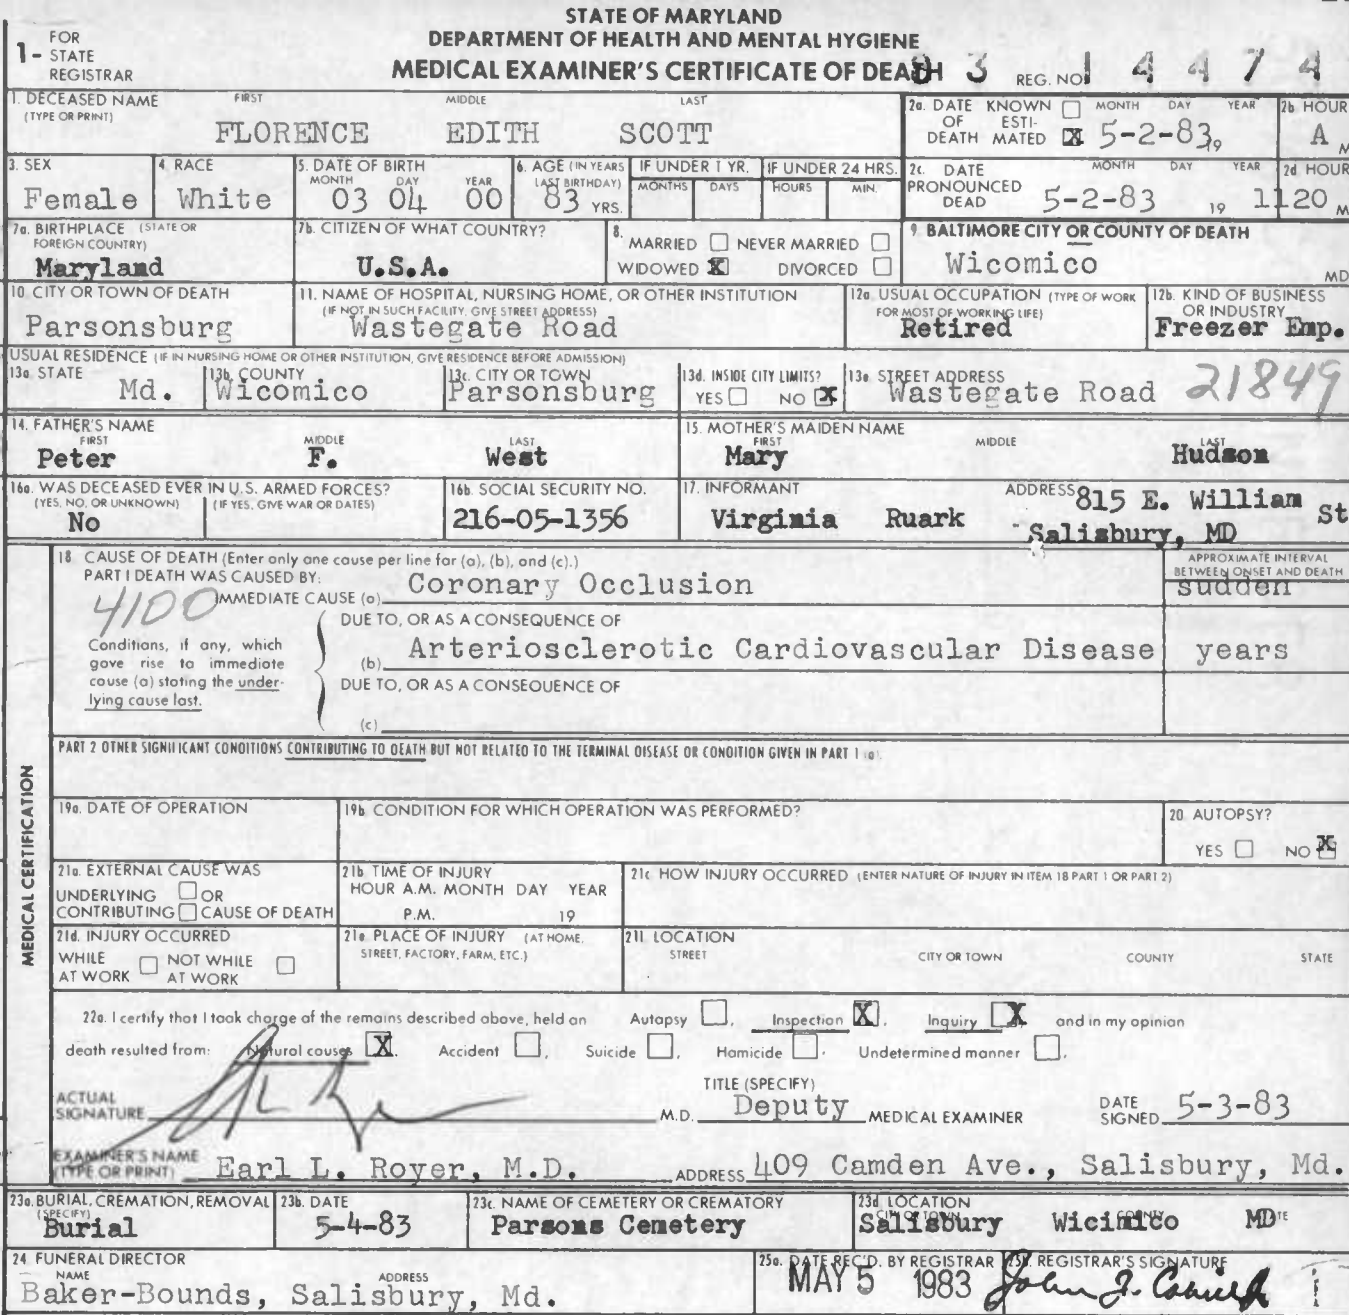 STATE OF MARYLAND
DEPARTMENT OF HEALTH AND MENTAL HYGIENE
MEDICAL EXAMINER'S CERTIFICATE OF DEATH
1- FOR STATE REGISTRAR
83 REG. NO. 14474
1. DECEASED NAME (TYPE OR PRINT) FIRST MIDDLE LAST
FLORENCE EDITH SCOTT
2a. DATE OF DEATH KNOWN ☐ ESTI-MATED ☒ MONTH DAY YEAR 5-2-83 19
2b HOUR A M
3. SEX Female
4. RACE White
5. DATE OF BIRTH MONTH DAY YEAR 03 04 00
6. AGE (IN YEARS LAST BIRTHDAY) 83 YRS.
IF UNDER 1 YR. MONTHS DAYS
IF UNDER 24 HRS. HOURS MIN.
2c. DATE PRONOUNCED DEAD MONTH DAY YEAR 5-2-83 19
2d HOUR 1120 M
7a. BIRTHPLACE (STATE OR FOREIGN COUNTRY) Maryland
7b. CITIZEN OF WHAT COUNTRY? U.S.A.
8. MARRIED ☐ NEVER MARRIED ☐
WIDOWED ☒ DIVORCED ☐
9. BALTIMORE CITY OR COUNTY OF DEATH
Wicomico MD
10. CITY OR TOWN OF DEATH Parsonsburg
11. NAME OF HOSPITAL, NURSING HOME, OR OTHER INSTITUTION
(IF NOT IN SUCH FACILITY, GIVE STREET ADDRESS)
Wastegate Road
12a. USUAL OCCUPATION (TYPE OF WORK FOR MOST OF WORKING LIFE) Retired
12b. KIND OF BUSINESS OR INDUSTRY Freezer Emp.
USUAL RESIDENCE (IF IN NURSING HOME OR OTHER INSTITUTION, GIVE RESIDENCE BEFORE ADMISSION)
13a. STATE Md.
13b. COUNTY Wicomico
13c. CITY OR TOWN Parsonsburg
13d. INSIDE CITY LIMITS? YES ☐ NO ☒
13e. STREET ADDRESS Wastegate Road 21849
14. FATHER'S NAME FIRST MIDDLE LAST
Peter F. West
15. MOTHER'S MAIDEN NAME FIRST MIDDLE LAST
Mary Hudson
16a. WAS DECEASED EVER IN U.S. ARMED FORCES?
(YES, NO, OR UNKNOWN) (IF YES, GIVE WAR OR DATES)
No
16b. SOCIAL SECURITY NO. 216-05-1356
17. INFORMANT Virginia Ruark
ADDRESS 815 E. William St
Salisbury, MD
18 CAUSE OF DEATH (Enter only one cause per line for (a), (b), and (c).)
PART I DEATH WAS CAUSED BY:
4100
IMMEDIATE CAUSE (a) Coronary Occlusion
APPROXIMATE INTERVAL BETWEEN ONSET AND DEATH
sudden
Conditions, if any, which gave rise to immediate cause (a) stating the under-lying cause last.
DUE TO, OR AS A CONSEQUENCE OF
(b) Arteriosclerotic Cardiovascular Disease years
DUE TO, OR AS A CONSEQUENCE OF
(c)
PART 2 OTHER SIGNIFICANT CONDITIONS CONTRIBUTING TO DEATH BUT NOT RELATED TO THE TERMINAL DISEASE OR CONDITION GIVEN IN PART 1 (a).
MEDICAL CERTIFICATION
19a. DATE OF OPERATION
19b. CONDITION FOR WHICH OPERATION WAS PERFORMED?
20. AUTOPSY?
YES ☐ NO ☒
21a. EXTERNAL CAUSE WAS
UNDERLYING ☐ OR
CONTRIBUTING ☐ CAUSE OF DEATH
21b TIME OF INJURY
HOUR A.M. MONTH DAY YEAR
P.M. 19
21c HOW INJURY OCCURRED (ENTER NATURE OF INJURY IN ITEM 18 PART 1 OR PART 2)
21d. INJURY OCCURRED
WHILE AT WORK ☐ NOT WHILE AT WORK ☐
21e PLACE OF INJURY (AT HOME, STREET, FACTORY, FARM, ETC.)
21f. LOCATION
STREET CITY OR TOWN COUNTY STATE
22a. I certify that I took charge of the remains described above, held an Autopsy ☐, Inspection ☒, Inquiry ☒ and in my opinion
death resulted from: Natural causes ☒. Accident ☐, Suicide ☐, Homicide ☐. Undetermined manner ☐.
ACTUAL SIGNATURE M.D.
TITLE (SPECIFY) Deputy MEDICAL EXAMINER
DATE SIGNED 5-3-83
EXAMINER'S NAME (TYPE OR PRINT) Earl L. Royer, M.D. ADDRESS 409 Camden Ave., Salisbury, Md.
23a. BURIAL, CREMATION, REMOVAL (SPECIFY) Burial
23b. DATE 5-4-83
23c. NAME OF CEMETERY OR CREMATORY Parsons Cemetery
23d LOCATION CITY OR TOWN COUNTY STATE
Salisbury Wicimico MD
24 FUNERAL DIRECTOR
NAME ADDRESS
Baker-Bounds, Salisbury, Md.
25a. DATE REC'D. BY REGISTRAR MAY 5 1983
25b. REGISTRAR'S SIGNATURE
John J.